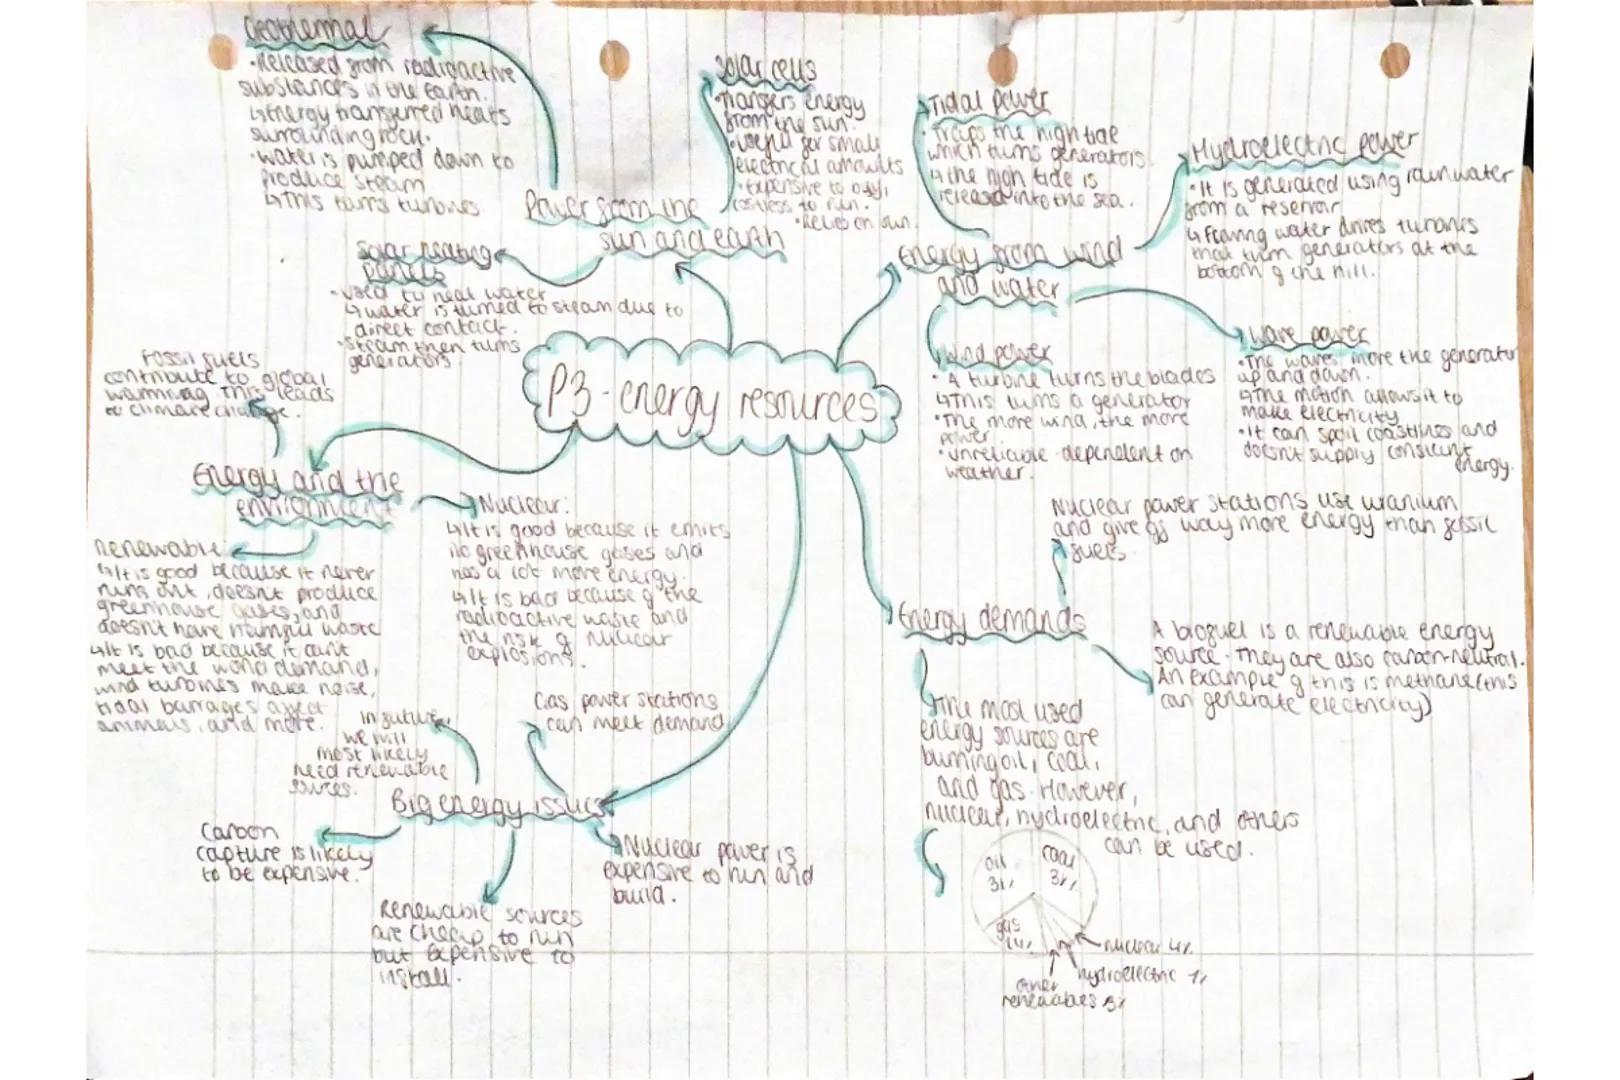 P3 - energy resources
Power from the
sun and earth
Geothermal
• Released from radioactive
substances in the Earth.
↳ Energy transferred heats
surrounding rock.
• water is pumped down to
produce steam
↳ This turns turbines
Solar cells
• Transfers energy
from the sun.
• useful for small
electrical amounts
• Expensive to buy,
costless to run.
• Relies on sun.
Solar heating
panels
• used to heat water
↳ water is turned to steam due to
direct contact.
• Steam then turns
generators.
Energy from wind
and water
Tidal power
• Traps the high tide
which turns generators
↳ the high tide is
released into the sea.
Hydroelectric power
• It is generated using rainwater
from a reservoir
↳ Flowing water drives turbines
that turn generators at the
bottom of the hill.
Wind power
• A turbine turns the blades
↳ This turns a generator
• The more wind, the more
power.
• unreliable - dependent on
weather.
Wave power
• The waves move the generator
up and down.
↳ The motion allows it to
make electricity
• It can spoil coastlines and
doesnt supply constant
energy.
Energy demands
Nuclear power stations use uranium
and give off way more energy than fossil
fuels.
A biofuel is a renewable energy
source. They are also carbon-neutral.
An example of this is methane (this
can generate electricity)
The most used
energy sources are
burning oil, coal,
and gas. However,
nuclear, hydroelectric, and others
can be used.
oil
31%
coal
gas
nuclear 4%
hydroelectric
other
renewables
Big energy issues
Nuclear power is
expensive to run and
build.
Renewable sources
are cheap to run
but expensive to
install.
Carbon
capture is likely
to be expensive.
In future,
we will
most likely
need renewable
Gas power stations
can meet demand
Energy and the
environment
Fossil fuels
contribute to global
warming. This leads
to climate change.
Nuclear:
↳ It is good because it emits
no greenhouse gases and
has a lot more energy.
↳ It is bad because of the
radioactive waste and
the risk of nuclear
explosions.
renewable
↳ It is good because it never
runs out, doesnt produce
greenhouse gases, and
doesnt have harmful waste
↳ It is bad because it cant
meet the world demand,
wind turbines make noise,
tidal barrages affect
animals, and more.